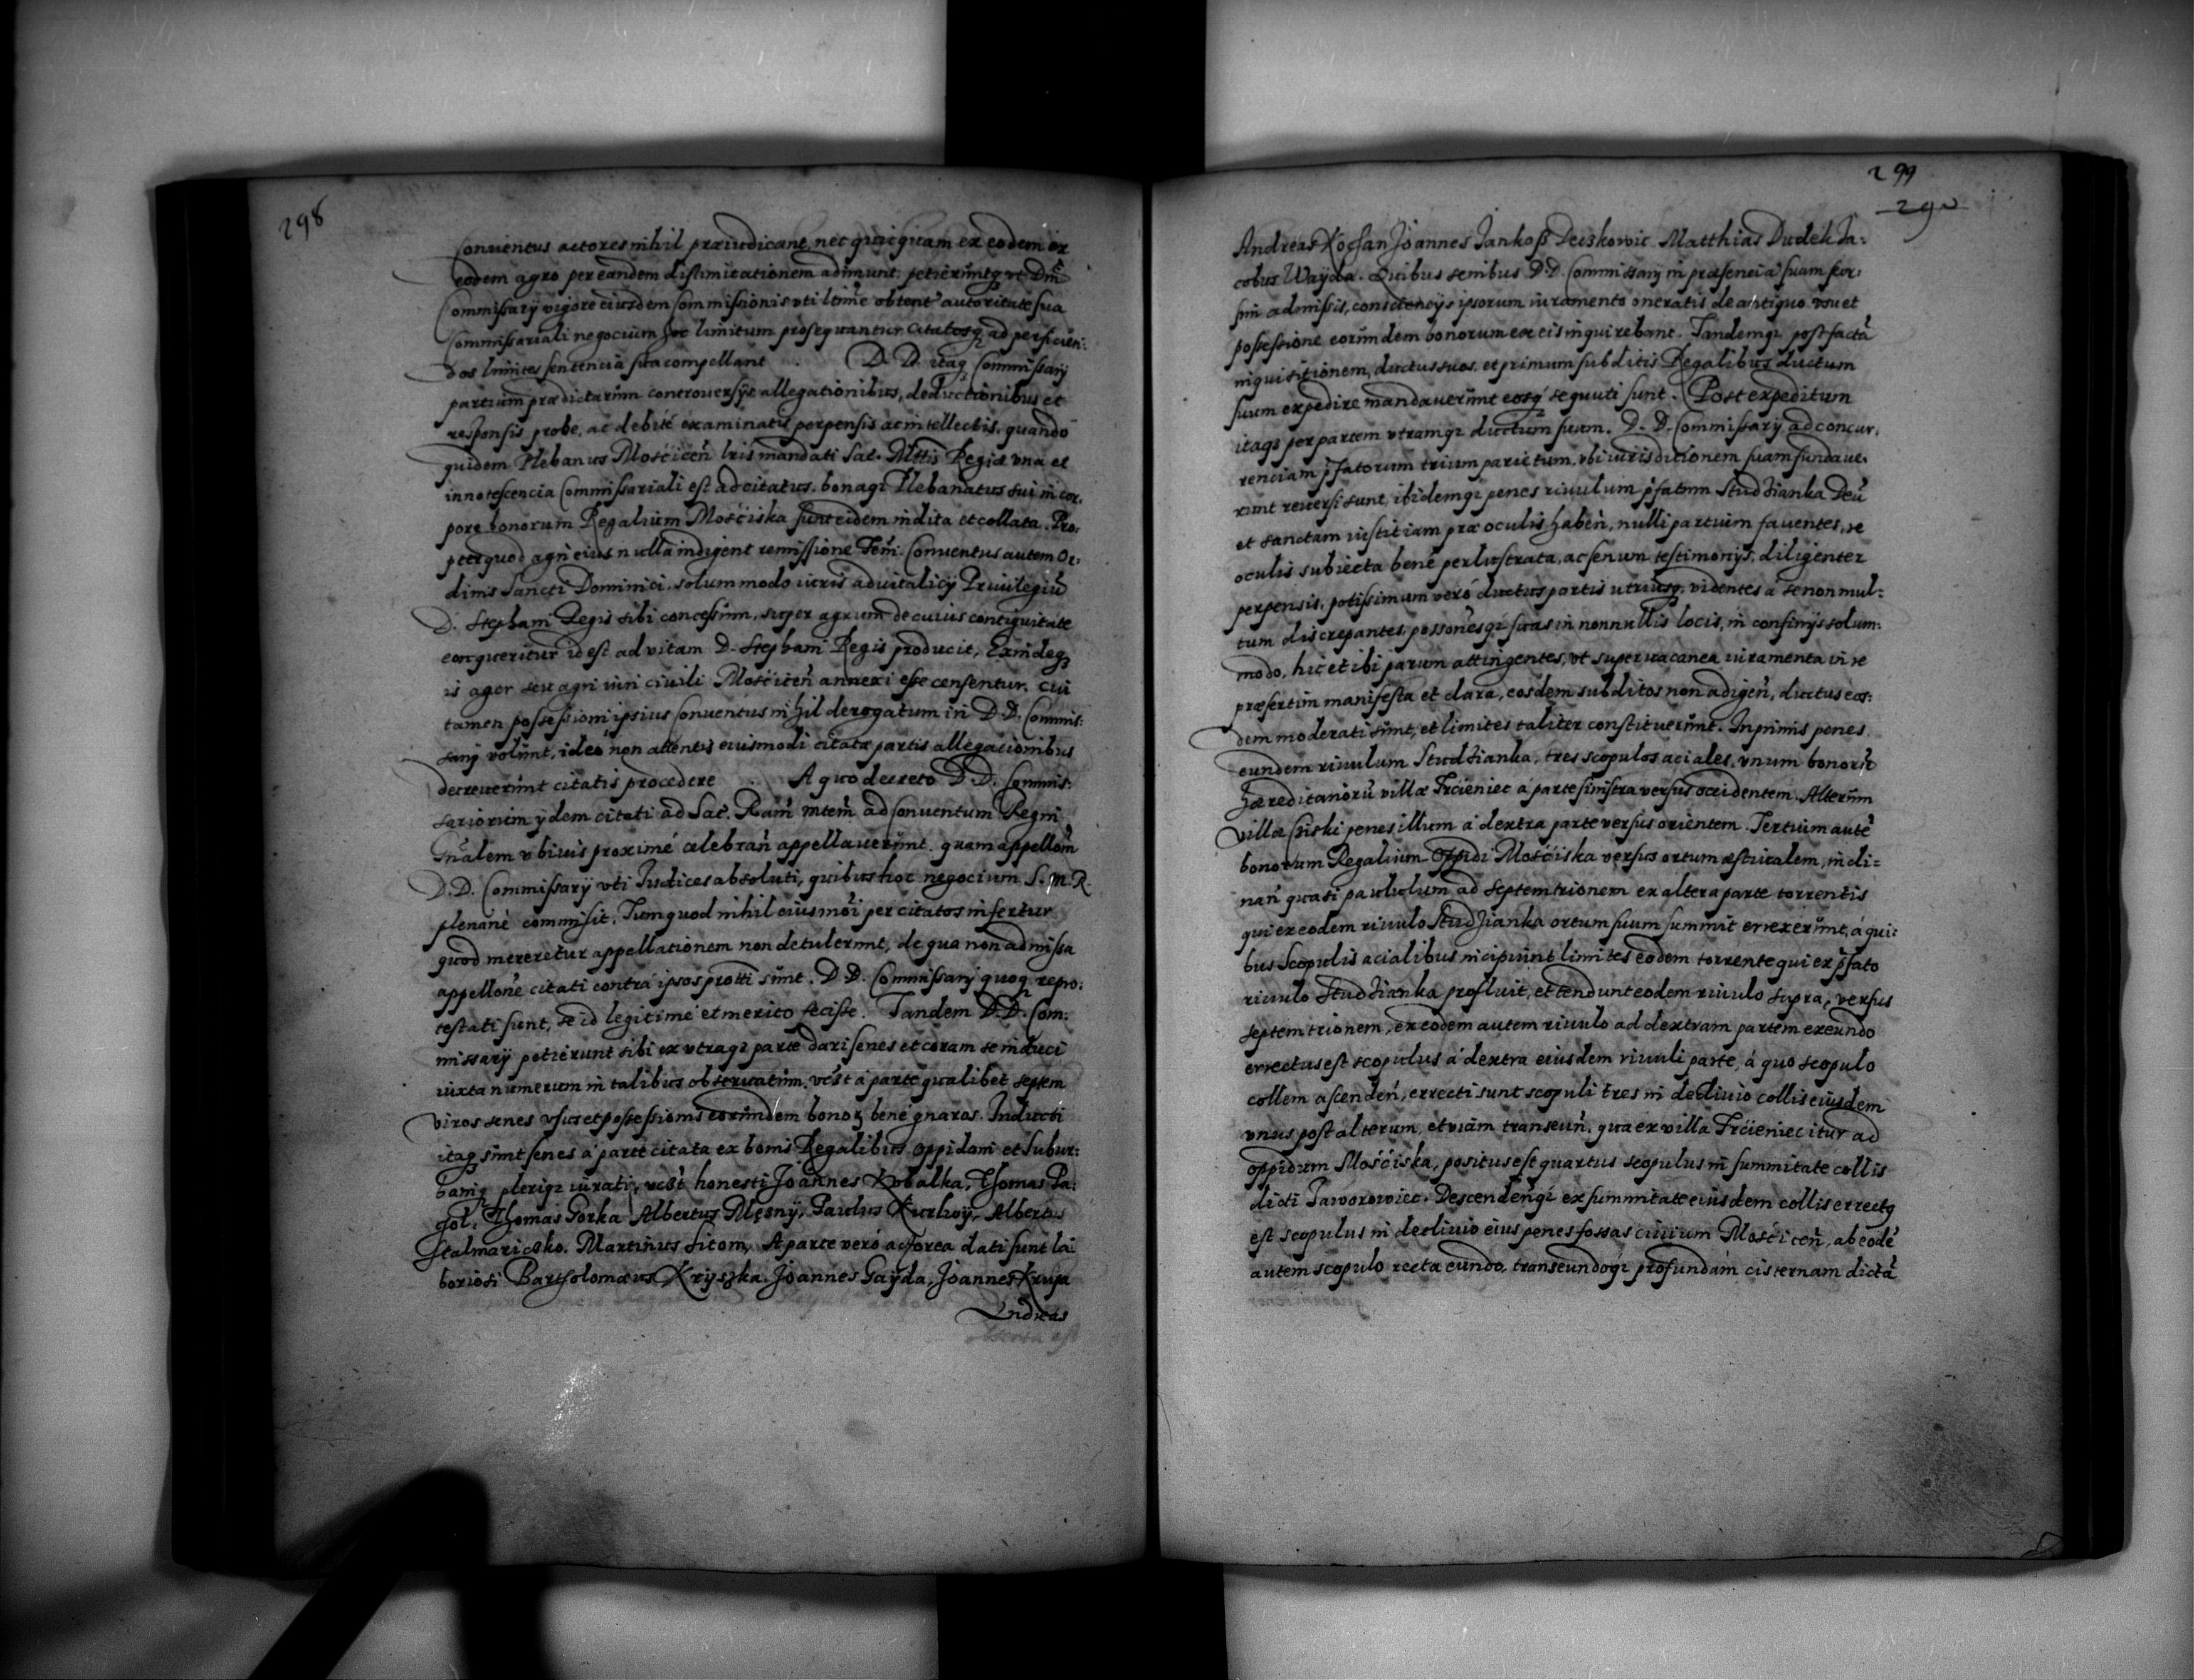 298
Conuentus actores nihil præiudicant, nec quicquam ex eodem ex
eodem agro per eandem distimitationem adimunt, petieruntq; vt Dni
Commissarÿ vigore eiusdem Commissionis vti ltime obtent autoritate sua
Commissariali negocium hoc limitum prosequantur citatosq; ad perficien:
dos limites sentencia sua compellant D. D. itaq; Commissarÿ
partium prædictarum controuersÿs allegationibus, deductionibus et
responsis probe, ac debité examinatis perpensis ac intellectis, quando
quidem Plebanus Mościceń lris mandati Sac. Mttis Regiæ vna et
innotescencia Commissariali est adcitatus, bonaq; Plebanatus sui in cor,
pore bonorum Regalium Mościska sunt eidem indita et collata. Pro,
pterquod agri eius nulla indigent remissione Tem. Conuentus autem Or:
dinis Sancti Dominici, solummodo iuris aduitalicÿ Priuilegiū
D. Stephani Regis sibi concessum, super agrum de cuius contiguitate
conqueritur id est ad vitam D. Stephani Regis producit, Exindeq;
is ager seu agri iuri ciuili Mościceń annexi esse censentur. Cui
tamen possessioni ipsius Conuentus nihil derogatum iri D.D. Commis:
sarÿ volunt, ideo non attentis eiusmodi citatæ partis allegacionibus
decreuerunt citatis procedere A quo decreto D.D. Commis:
sariorum ÿdem citati ad Sac. Ram mtem ad Conuentum Regni
Gnalem vbiuis proximé celebrań appellauerunt. quam appellom
D.D. Commissarÿ vti Iudices absoluti, quibus hoc negocium S. M. R.
plenarie commisit, Tum quod nihil eiusmoi per citatos infertur
quod mereretur appellationem non detulerunt, de qua non admissa
appellone citati contrá ipsos protti sunt. D D. Commissarÿ quoq; repro:
testati sunt, se id legitimé et merito fecisse. Tandem D.D. Com:
missarÿ petierunt sibi ex vtraq; parte dari senes et coram se induci
iuxta numerum in talibus obseruatum, vcst á parte qualibet septem
viros senes vsus et possessionis eorundem bonoꝝ bené gnaros. Inducti
itaq; sunt senes á parte citata ex bonis Regalibus oppidani et Subur:
baniq; pleriq; iurati, vcst honesti Joannes Kobalka, Thomas Pa:
Thomas Gorka Albertus Męsnÿ, Paulus Kurhoÿ, Albertus
Stalmaricsko. Martinus Sitom, A parte veró actorea dati sunt la:
boriosi Bartholomæus Krÿszka, Joannes Gaÿda, Joannes Krupa
Andreas
299
290
Andreas Kochan Joannes Iankoß Leiskowic Matthias Dudek Ia:
cobus Waÿda. Quibus senibus D.D. Commissarÿ in præsenciā suam seor:
sim admissis, conscienciÿs ipsorum iuramento oneratis de antiquo vsu et
possessione eorundem bonorum ex eis inquirebant. Tandemq; post factā
inquisitionem, ductus suos, et primum subditis Regalibus ductum
suum expedire mandauerunt eosq; sequuti sunt. Post expeditum
itaq; per partem vtramq; ductum suum, D. D. Commissarÿ ad concur,
renciam pfatorum trium parietum, vbi iurisdicionem suam fundaue,
runt reuersi sunt, ibidemq; penes riuulum pfatum Studzianka Deū
et sanctam iustitiam præ oculis habeń, nulli partium fauentes, re
oculis subiecta bené perlustrata, ac senum testimonÿs diligenter
perpensis, potissimum veró ductus partis utriusq; videntes á se non mul:
tum discrepantes, possonesq; suas in nonnullis locis, in confinÿs solum:
modo, hic et ibi parum attingentes, vt superuacanea iuramenta in re
præsertim manifesta et clara, eosdem subditos non adigeń, ductus eos:
dem moderati sunt, et limites taliter constituerunt. Inprimis penes
eundem riuulum Studzianka, tres scopulos aciales, vnum bonorū
hæreditariorū villæ Trcieniec á parte sinistra versus occidentem. Alterum
villæ Cziski penes illum á dextra parte versus orientem. Tertium autē
bonorum Regalium Oppidi Mościska versus ortum æstiualem, incli=
nań quasi paululum ad septemtrionem ex altera parte torrentis
qui ex eodem riuulo Studzianka ortum suum summit errexerunt, á qui:
bus Scopulis acialibus incipiunt limites eodem torrente qui ex pfato
riuulo Studzianka profluit, et tendunt eodem riuulo supra, versus
septemtrionem, ex eodem autem riuulo ad dextram partem exeundo
errectus est scopulus á dextra eiusdem riuuli parte, á quo scopulo
collem ascendeń, errecti sunt scopuli tres in decliuio collis eiusdem
vnus post alterum, et viam transeuń, qua ex villa Trcieniec itur ad
oppidum Mościska, positus est quartus scopulus in summitate collis
dicti Jaworowiec. Descendeńq; ex summitate eiusdem collis errectꝯ
est scopulus in decliuio eius penes fossas ciuium Mościceń, ab eodē
autem scopulo recta eundo, transeundoq; profundam cisternam dictā